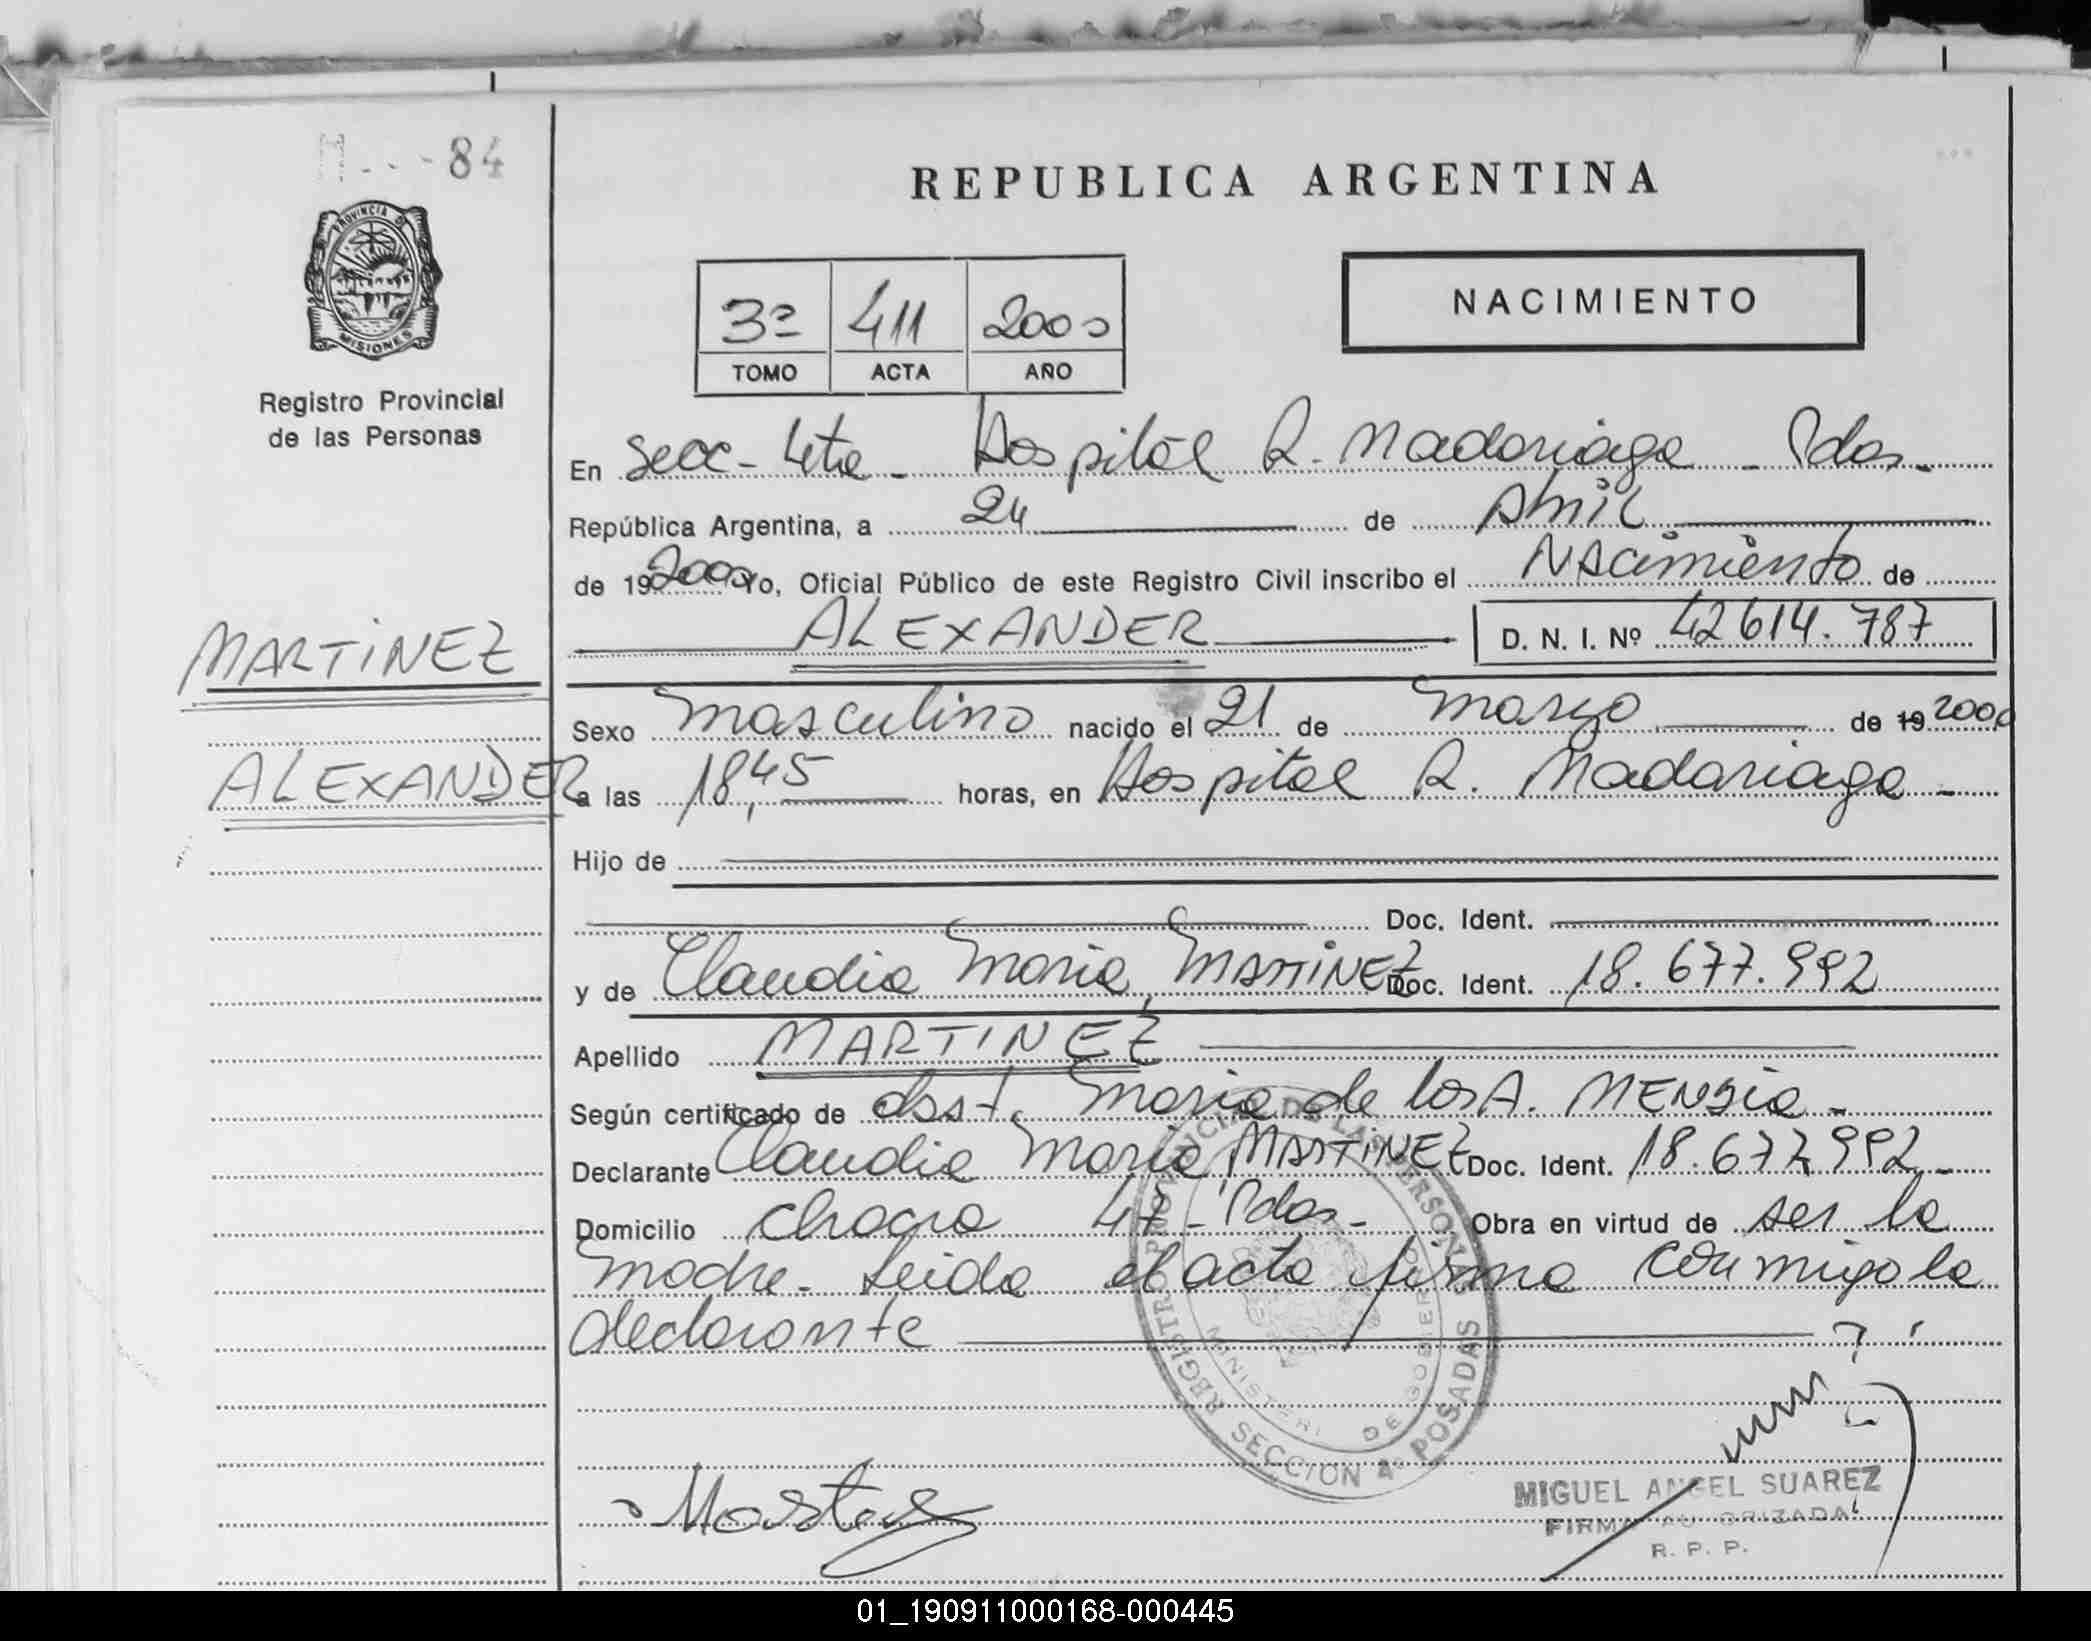 -84
REPUBLICA ARGENTINA
PROVINCIA DE
MISIONES
3º 411 2000
TOMO ACTA AÑO
NACIMIENTO
Registro Provincial
de las Personas
En Secc. 4ta. Hospital R. Madariaga - Pdas.
República Argentina, a 24 de Abril
de 192000 Yo, Oficial Público de este Registro Civil inscribo el Nacimiento de
ALEXANDER D. N. I. Nº 42614.787
MARTINEZ
Sexo masculino nacido el 21 de marzo de 19 2000
ALEXANDER
a las 18,45 horas, en Hospital R. Madariaga -
Hijo de
Doc. Ident.
y de Claudia Maria MARTINEZ Doc. Ident. 18.677.992
Apellido MARTINEZ
Según certificado de obst. Maria de los A. MENSia -
Declarante Claudia Maria MARTINEZ Doc. Ident. 18.677.992 -
Domicilio chacra 47 - Pdas - Obra en virtud de ser la
madre. Leida el acta firma conmigo la
declarante
REGISTRO PROVINCIAL DE LAS PERSONAS
MINISTERI DE GOBIERNO
SECCION 4º POSADAS
MIGUEL ANGEL SUAREZ
FIRMA AUTORIZADA
R. P. P.
01_190911000168-000445